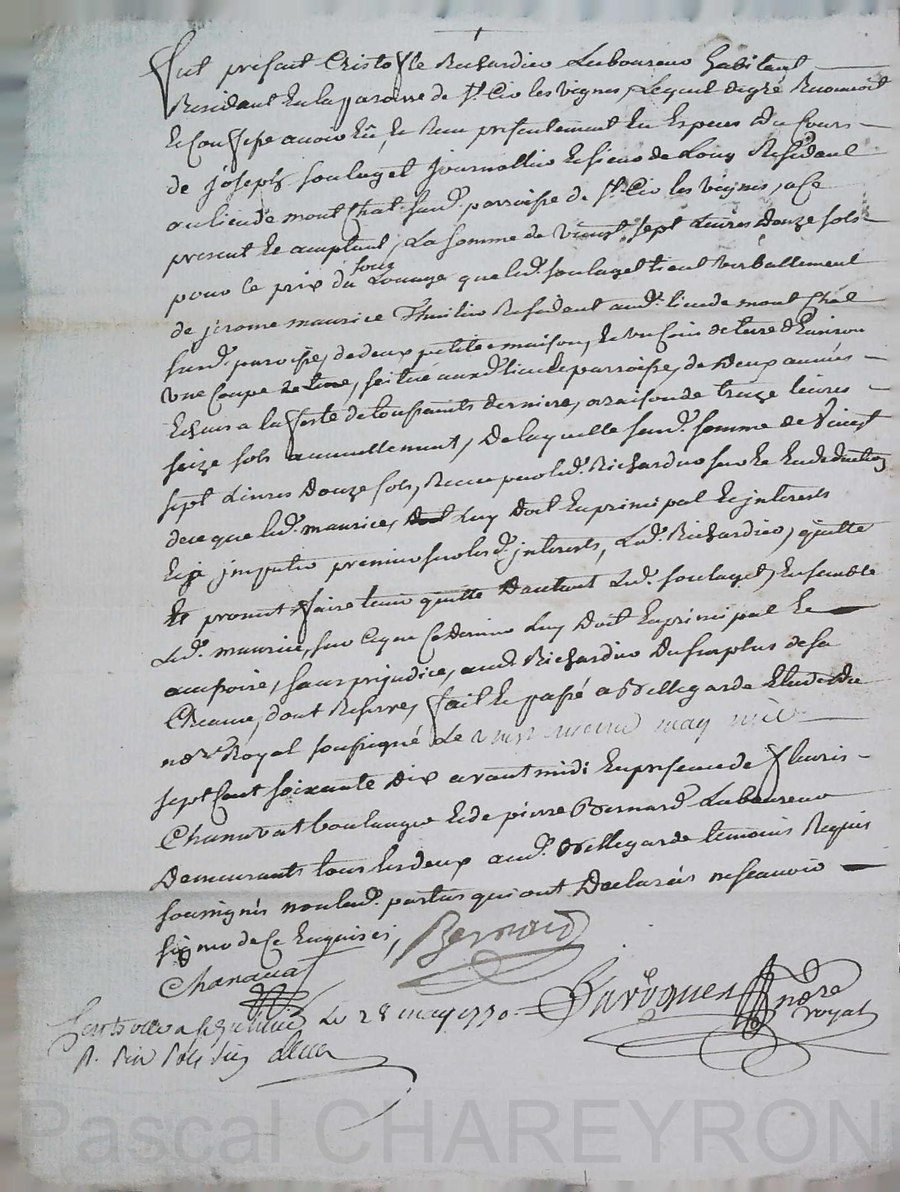 Fut present Cristofle Richardier Laboureur habitant
Residant En la parroisse de St. Cir les vignes, Lequel de gré Reconnoit
et Confesse avoir Eü, et Reçu presentement En Especes Du Cours
de joseph soulagel journallier
au lieu de mont Chal susd. parroisse de St. Cir les vignes, a Ce
present et aceptant, La somme de vingt sept Livres Douze sols
pour Le prix du sous Louage que led. soulagel tient verballement
de jerome maurice Residant aud. lieu de mont Chal
susd. paroisse, de deux petite maison, et un Coin de terre d'Environ
une Coupe, scitué auxd. lieu et parroisse, de Deux années
Echus a la feste de toussaints derniere, a raison de treize livres
seize sols annuellement, De laquelle susd. somme de vingt
sept Livres Douze sols, Recue par led. Richardier sur Et En deduction
de ce que led. maurice, Luy Doit En principal Et interests
Et a imputer premier sur lesd. interests, Led. Richardier, quitte
Et promet faire tenir quitte Dautant Led. soulagel, Ensemble
Led. maurice, sur Ce que Ce Dernier Luy Doit En principal Et
accessoire, sans prejudice, aud. Richardier Du surplus de sa
Creance, dont Reserve, fait Et passé a Bellegarde Etude Du
nore. Royal soussigné Le may mil
sept Cent soixante Dix avant midi En presence de fleuris
Chanavat boulanger Et de pierre Bernard Laboureur
Demeurants tous Les deux aud. Bellegarde temoins Requis
soussignés non led. parties qui ont Declarés ne scavoir
signer de Ce Enquis
Bernard
Chanavat
nore royal
Le 28 may 1770